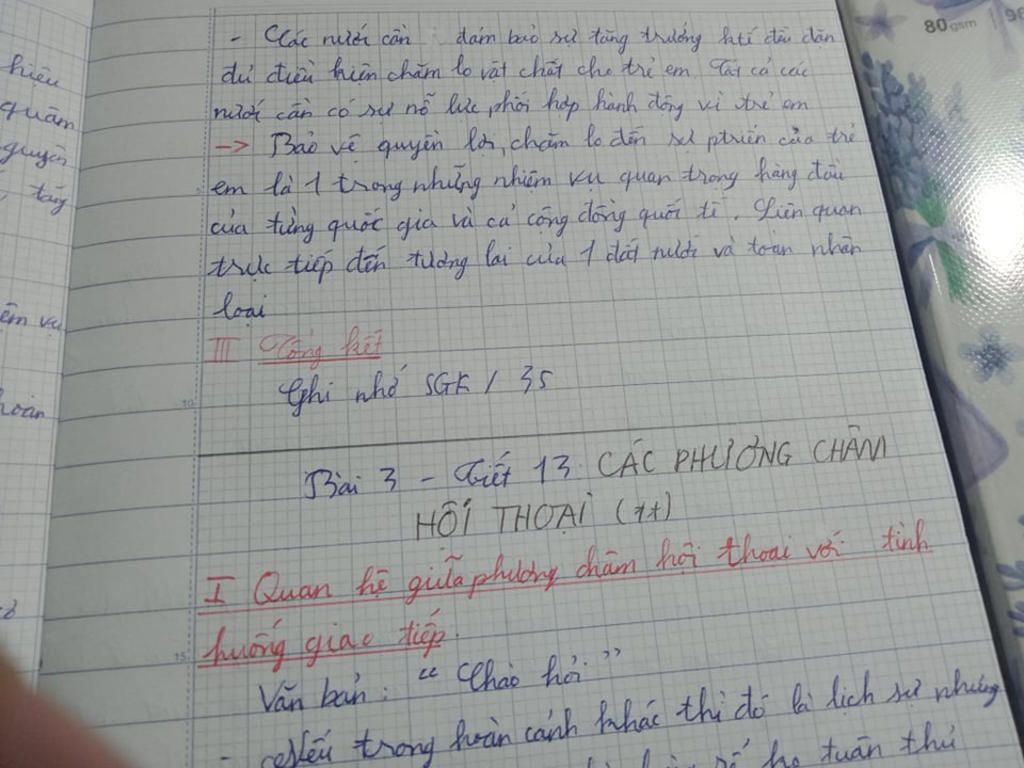 - Các nước cần : đảm bảo sự tăng trưởng ktế đều đặn
đủ điều kiện chăm lo vật chất cho trẻ em. Tất cả các
nước cần có sự nỗ lực phối hợp hành động vì trẻ em
→ Bảo vệ quyền lợi, chăm lo đến sự ptriển của trẻ
em là 1 trong những nhiệm vụ quan trọng hàng đầu
của từng quốc gia và cả cộng đồng quốc tế. Liên quan
trực tiếp đến tương lai của 1 đất nước và toàn nhân
loại
III Tổng kết
Ghi nhớ SGK / 35
Bài 3 - Tiết 13 CÁC PHƯƠNG CHÂM
HỘI THOẠI (tt)
I Quan hệ giữa phương châm hội thoại với tình
huống giao tiếp.
Văn bản : " Chào hỏi "
- Nếu trong hoàn cảnh khác thì đó là lịch sự nhưng
tuân thủ
hiệu
quâm
quyền
tăng
em vụ
hoàn
80 gsm